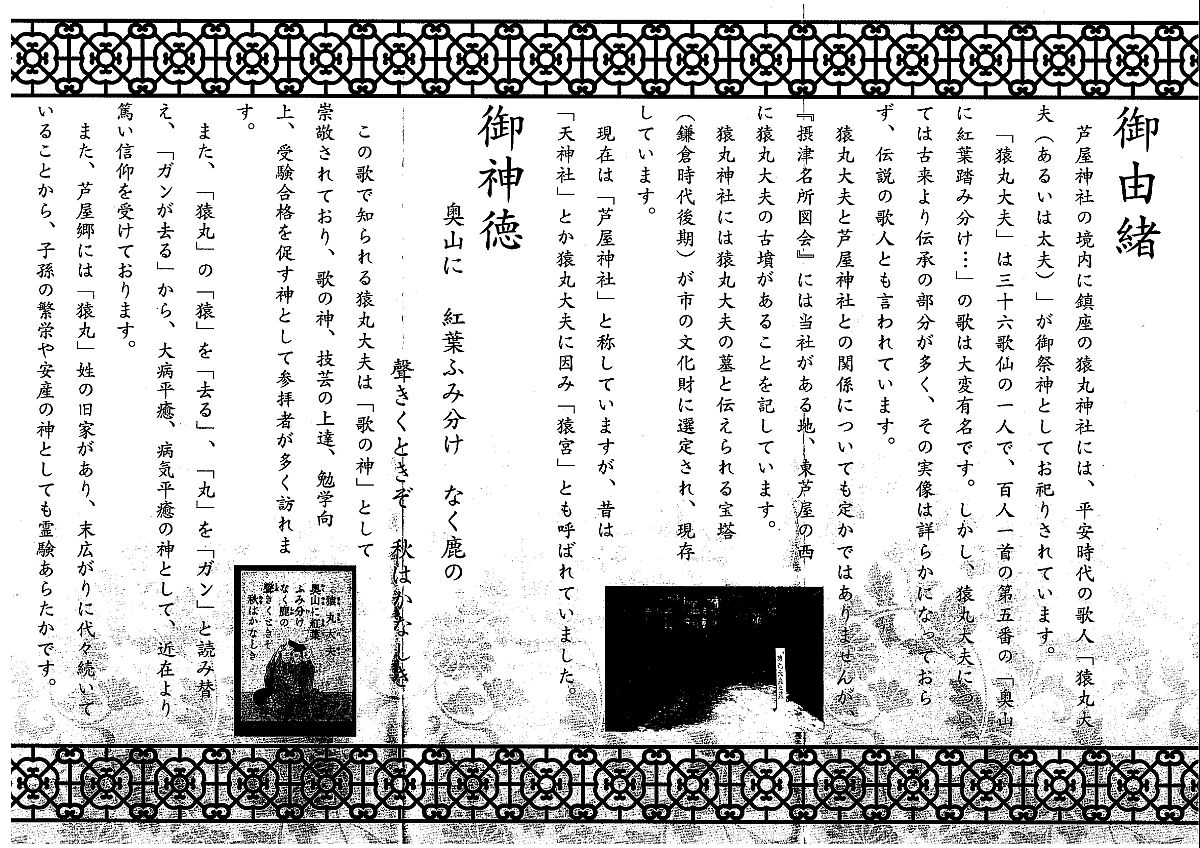 御由緒
芦屋神社の境内に鎮座の猿丸神社には、平安時代の歌人「猿丸大
夫（あるいは太夫）」が御祭神としてお祀りされています。
「猿丸大夫」は三十六歌仙の一人で、百人一首の第五番の「奥山
に紅葉踏み分け…」の歌は大変有名です。しかし、猿丸大夫につい
ては古来より伝承の部分が多く、その実像は詳らかになっておら
ず、伝説の歌人とも言われています。
猿丸大夫と芦屋神社との関係についても定かではありませんが、
『摂津名所図会』には当社がある地、東芦屋の西
に猿丸大夫の古墳があることを記しています。
猿丸神社には猿丸大夫の墓と伝えられる宝塔
（鎌倉時代後期）が市の文化財に選定され、現存
しています。
現在は「芦屋神社」と称していますが、昔は
「天神社」とか猿丸大夫に因み「猿宮」とも呼ばれていました。
御神徳
奥山に　紅葉ふみ分け　なく鹿の
聲きくときぞ　秋はかなしき
この歌で知られる猿丸大夫は「歌の神」として
崇敬されており、歌の神、技芸の上達、勉学向
上、受験合格を促す神として参拝者が多く訪れま
す。
また、「猿丸」の「猿」を「去る」、「丸」を「ガン」と読み替
え、「ガンが去る」から、大病平癒、病気平癒の神として、近在より
篤い信仰を受けております。
また、芦屋郷には「猿丸」姓の旧家があり、末広がりに代々続いて
いることから、子孫の繁栄や安産の神としても霊験あらたかです。
猿丸大夫
奥山に紅葉
ふみ分け
なく鹿の
聲きくときぞ
秋はかなしき